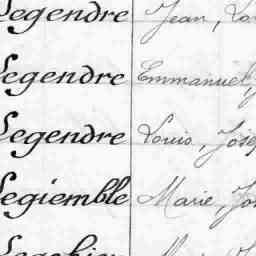 Legendre Jean,
Legendre Emmanuel,
Legendre Louis,
Legiemble Marie,